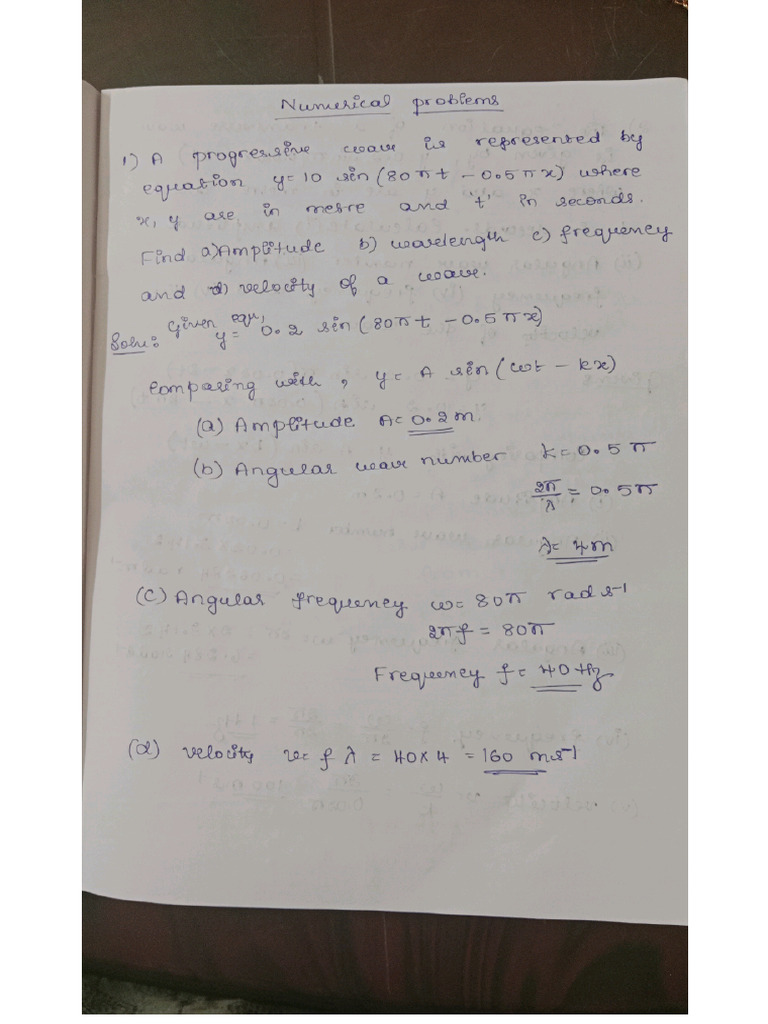 Numerical problems
1) A progressive wave is represented by
equation y=10 sin(80πt - 0.5πx) where
x, y are in metre and 't' in seconds.
Find a) Amplitude b) wavelength c) frequency
and d) velocity of a wave.
Solu: Given equ, y= 0.2 sin(80πt - 0.5πx)
comparing with, y= A sin(ωt - kx)
(a) Amplitude A= 0.2 m
(b) Angular wave number k= 0.5 π
2π/λ = 0.5π
λ= 4m
(C) Angular frequency ω= 80π rad s⁻¹
2πf = 80π
Frequency f= 40 Hz
(d) velocity v= f λ = 40 x 4 = 160 ms⁻¹